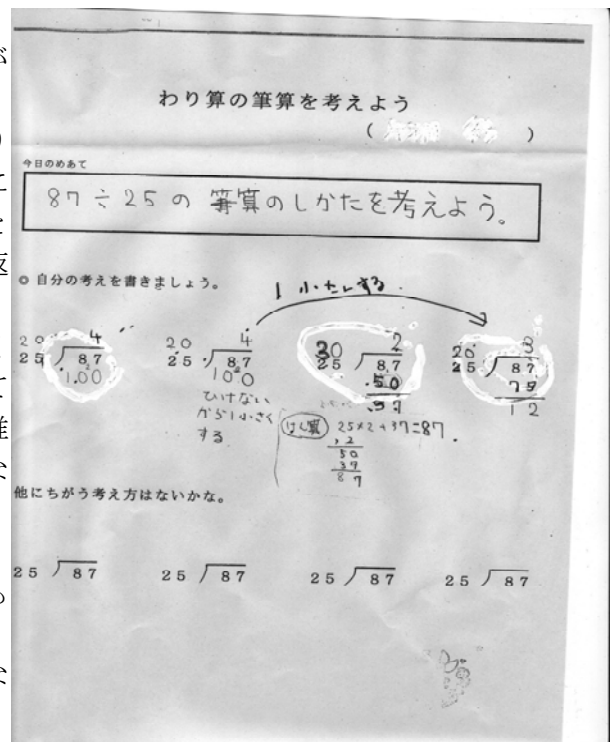 わり算の筆算を考えよう
( )
今日のめあて
87÷25の 筆算のしかたを考えよう。
◎ 自分の考えを書きましょう。
1 小さくする
20 4
25 87
100
20 4
25 87
100
ひけない
から1小さく
する
30 2
25 87
50
37
けん算 25×2+37=87
50
37
87
20 3
25 87
75
12
他にちがう考え方はないかな。
25 87 25 87 25 87 25 87